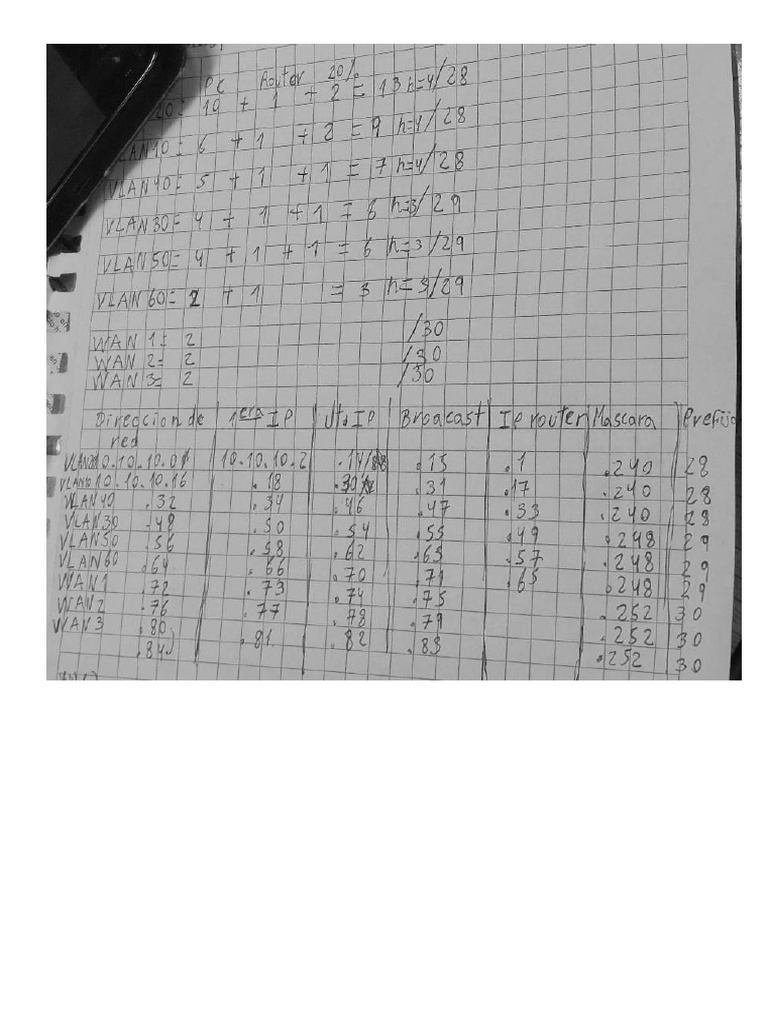 PC Router 20%
20= 10 + 1 + 2 = 13 h=4/28
VLAN10= 6 + 1 + 2 = 9 h=4/28
VLAN40= 5 + 1 + 1 = 7 h=4/28
VLAN30= 4 + 1 + 1 = 6 h=3/29
VLAN50= 4 + 1 + 1 = 6 h=3/29
VLAN60= 2 + 1 = 3 h=3/29
WAN 1= 2 /30
WAN 2= 2 /30
WAN 3= 2 /30
Direccion de red 1era IP Ult. IP Broacast IP router Mascara Prefijo
10.10.10.0 10.10.10.2 .14 .15 .1 .240 28
10.10.10.16 .18 .30 .31 .17 .240 28
VLAN40 .32 .34 .46 .47 .33 .240 28
VLAN30 .48 .50 .54 .55 .49 .248 29
VLAN50 .56 .58 .62 .63 .57 .248 29
VLAN60 .64 .66 .70 .71 .65 .248 29
WAN1 .72 .73 .74 .75 .252 30
WAN2 .76 .77 .78 .79 .252 30
WAN3 .80 .81 .82 .83 .252 30
.84